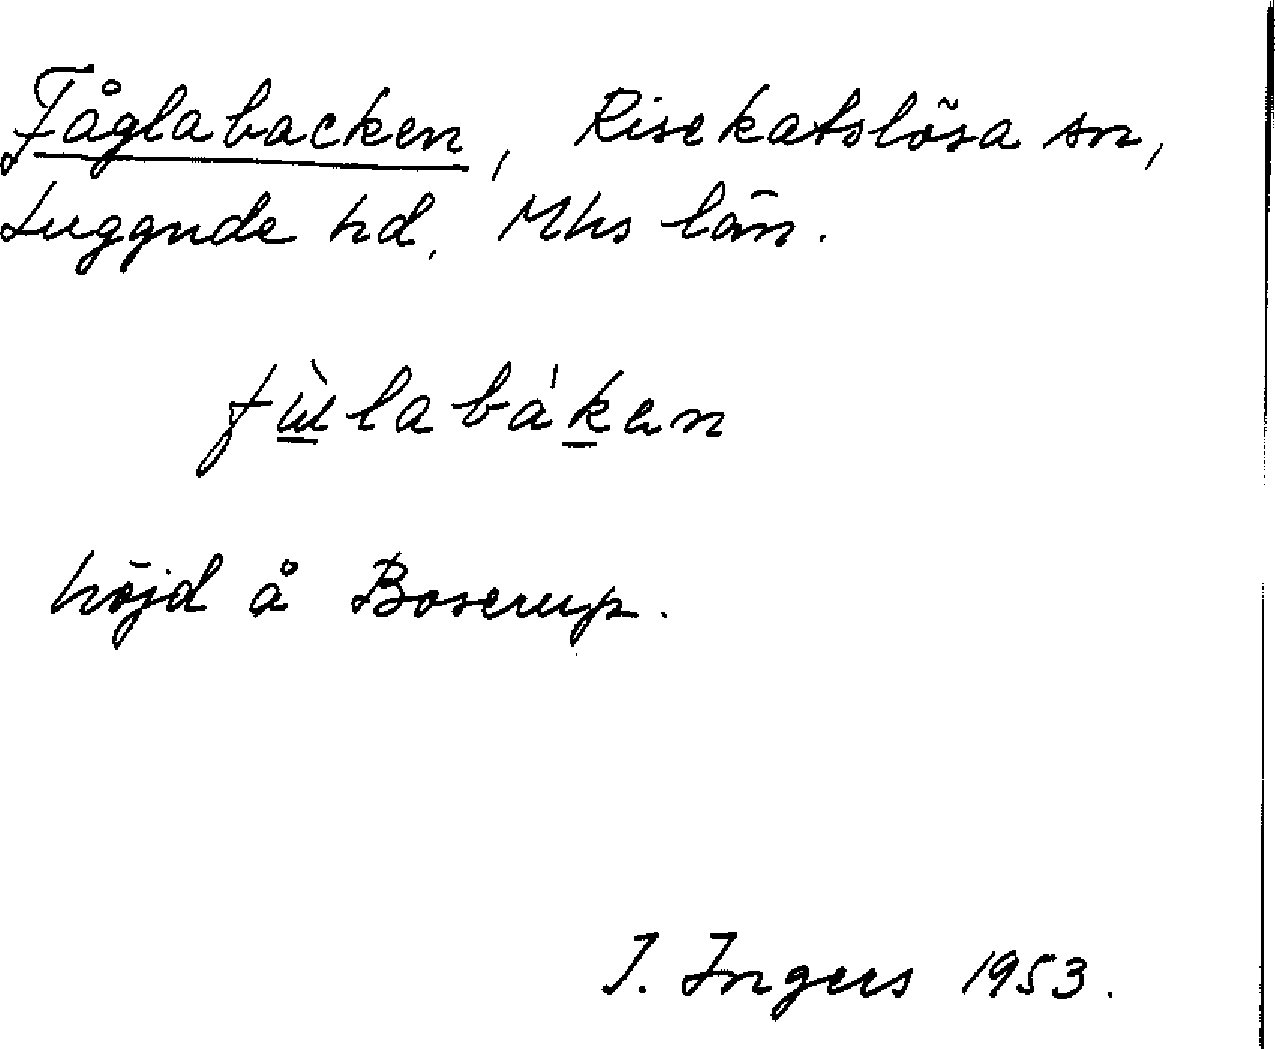 Fåglabacken, Risekatslösa sn,
Luggude hd. Mhs län.
fùlabáken
höjd å Boserup.
I. Ingers 1953.